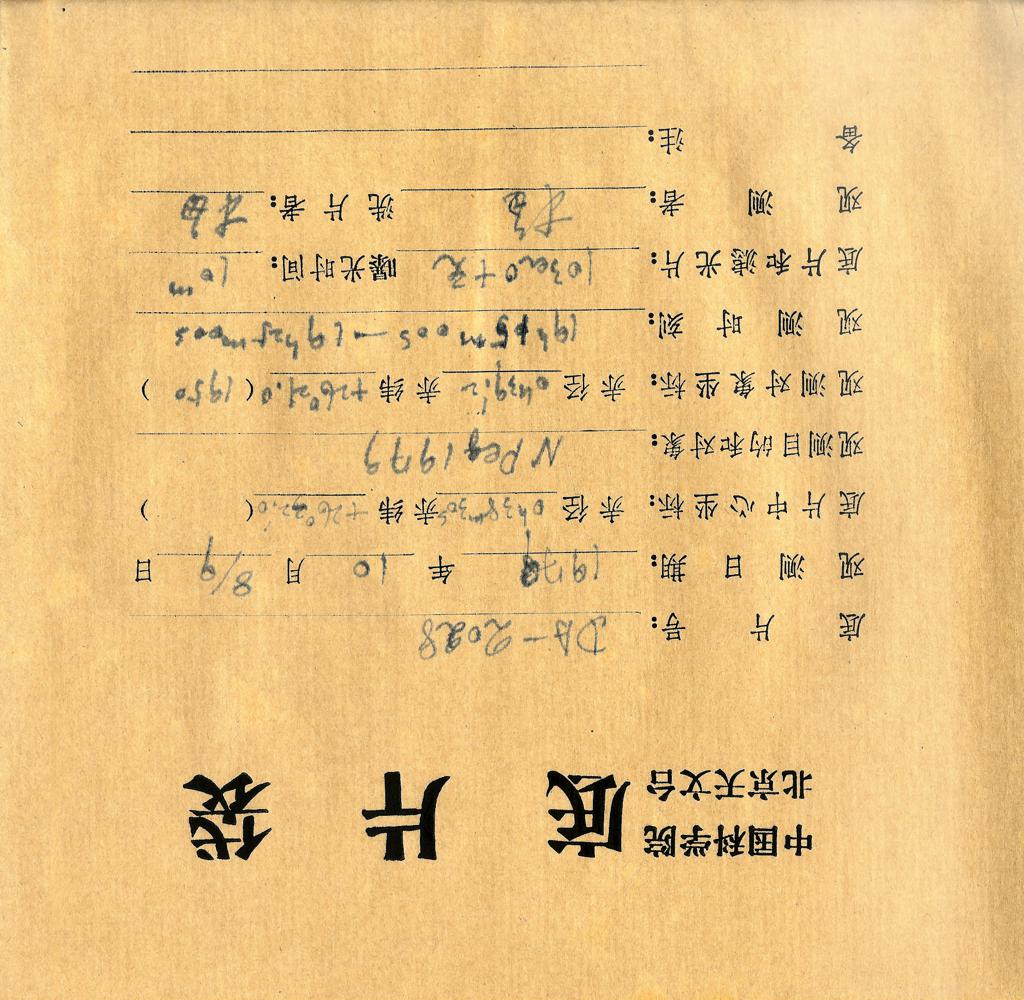 中国科学院
北京天文台 底片袋
底片号: DA-2028
观测日期: 1979 年 10 月 8/9 日
底片中心坐标: 赤径 0h38m30s 赤纬 +26°32.0 ( )
观测目的和对象: N Peg 1979
观测对象坐标: 赤径 0h39.2 赤纬 +26°21.0 (1950)
观测时刻: 19h15m00s—19h25m00s
底片和滤光片: 103aO+无 曝光时间: 10m
观测者: 洗片者:
备注: